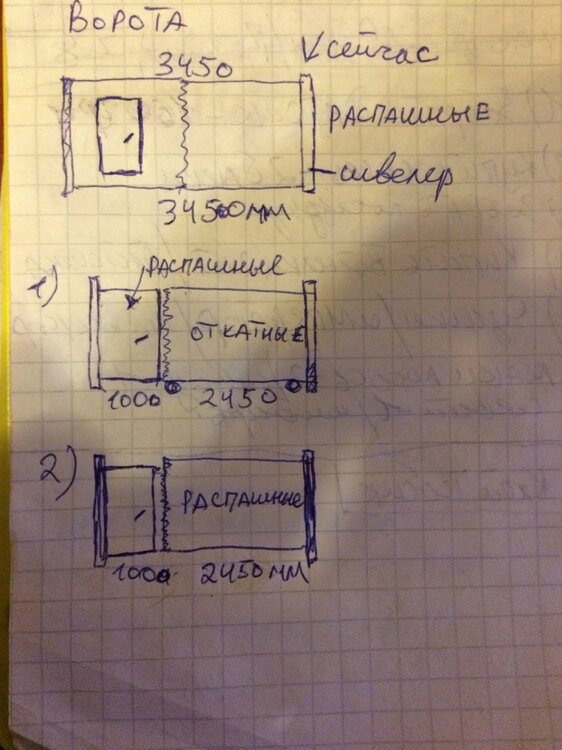 ВОРОТА
3450
сейчас
РАСПАШНЫЕ
швелер
3450мм
1)
РАСПАШНЫЕ
ОТКАТНЫЕ
1000 2450
2)
РАСПАШНЫЕ
1000 2450мм